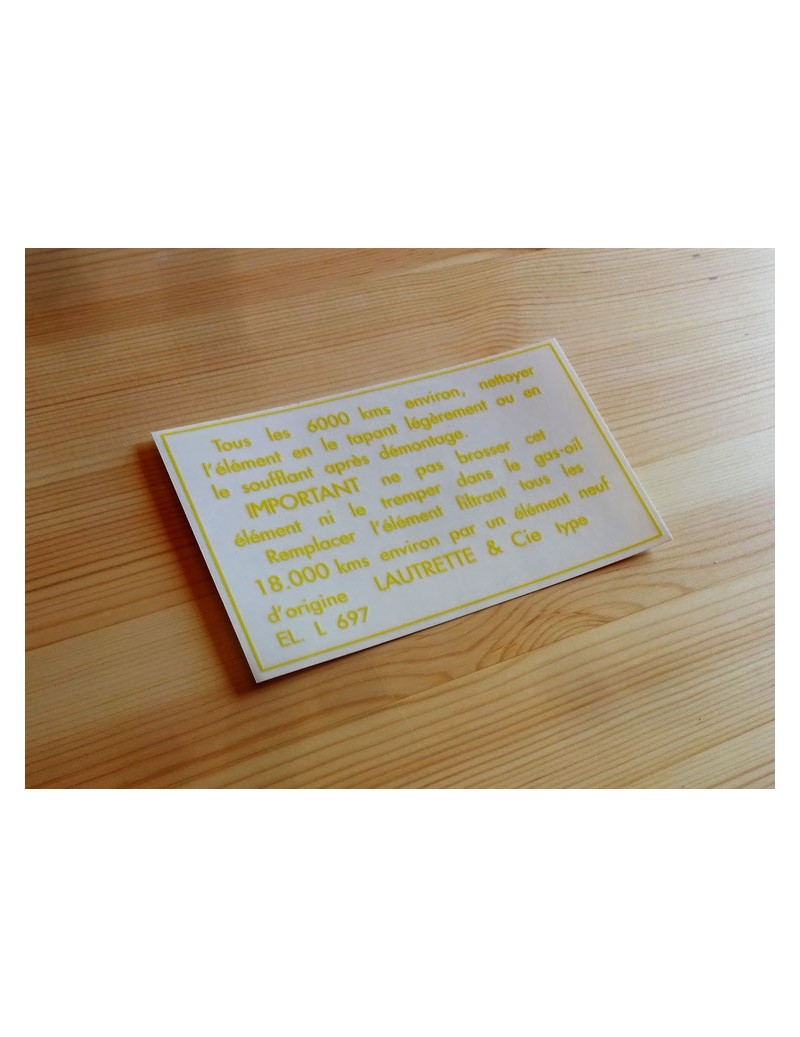 Tous les 6000 kms environ, nettoyer
l'élément en le tapant légèrement ou en
le soufflant après démontage.
IMPORTANT ne pas brosser cet
élément ni le tremper dans le gas-oil
Remplacer l'élément filtrant tous les
18.000 kms environ par un élément neuf
d'origine LAUTRETTE & Cie type
EL. L 697